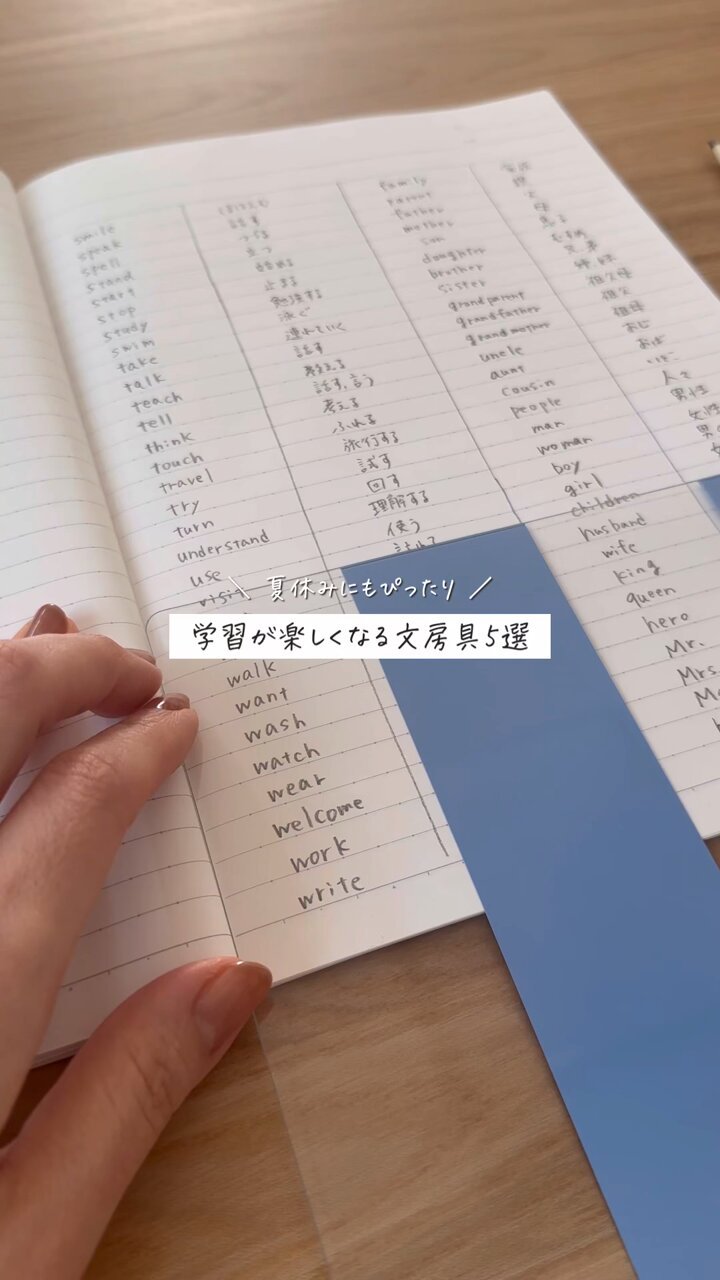 smile
speak
spell
stand
start
stop
study
swim
take
talk
teach
tell
think
touch
travel
try
turn
understand
use
visit
walk
want
wash
watch
wear
welcome
work
write
話す
つづる
立つ
始める
止まる
勉強する
泳ぐ
連れていく
話す
教える
話す,言う
考える
ふれる
旅行する
試す
回す
理解する
使う
family
parent
father
mother
son
daughter
brother
sister
grandparent
grandfather
grandmother
uncle
aunt
cousin
people
man
woman
boy
girl
children
husband
wife
king
queen
hero
Mr.
Mrs.
父
母
息子
むすめ
兄弟
姉妹
祖父母
祖父
祖母
おじ
おば
いとこ
人々
男性
女性
\ 夏休みにもぴったり /
学習が楽しくなる文房具5選